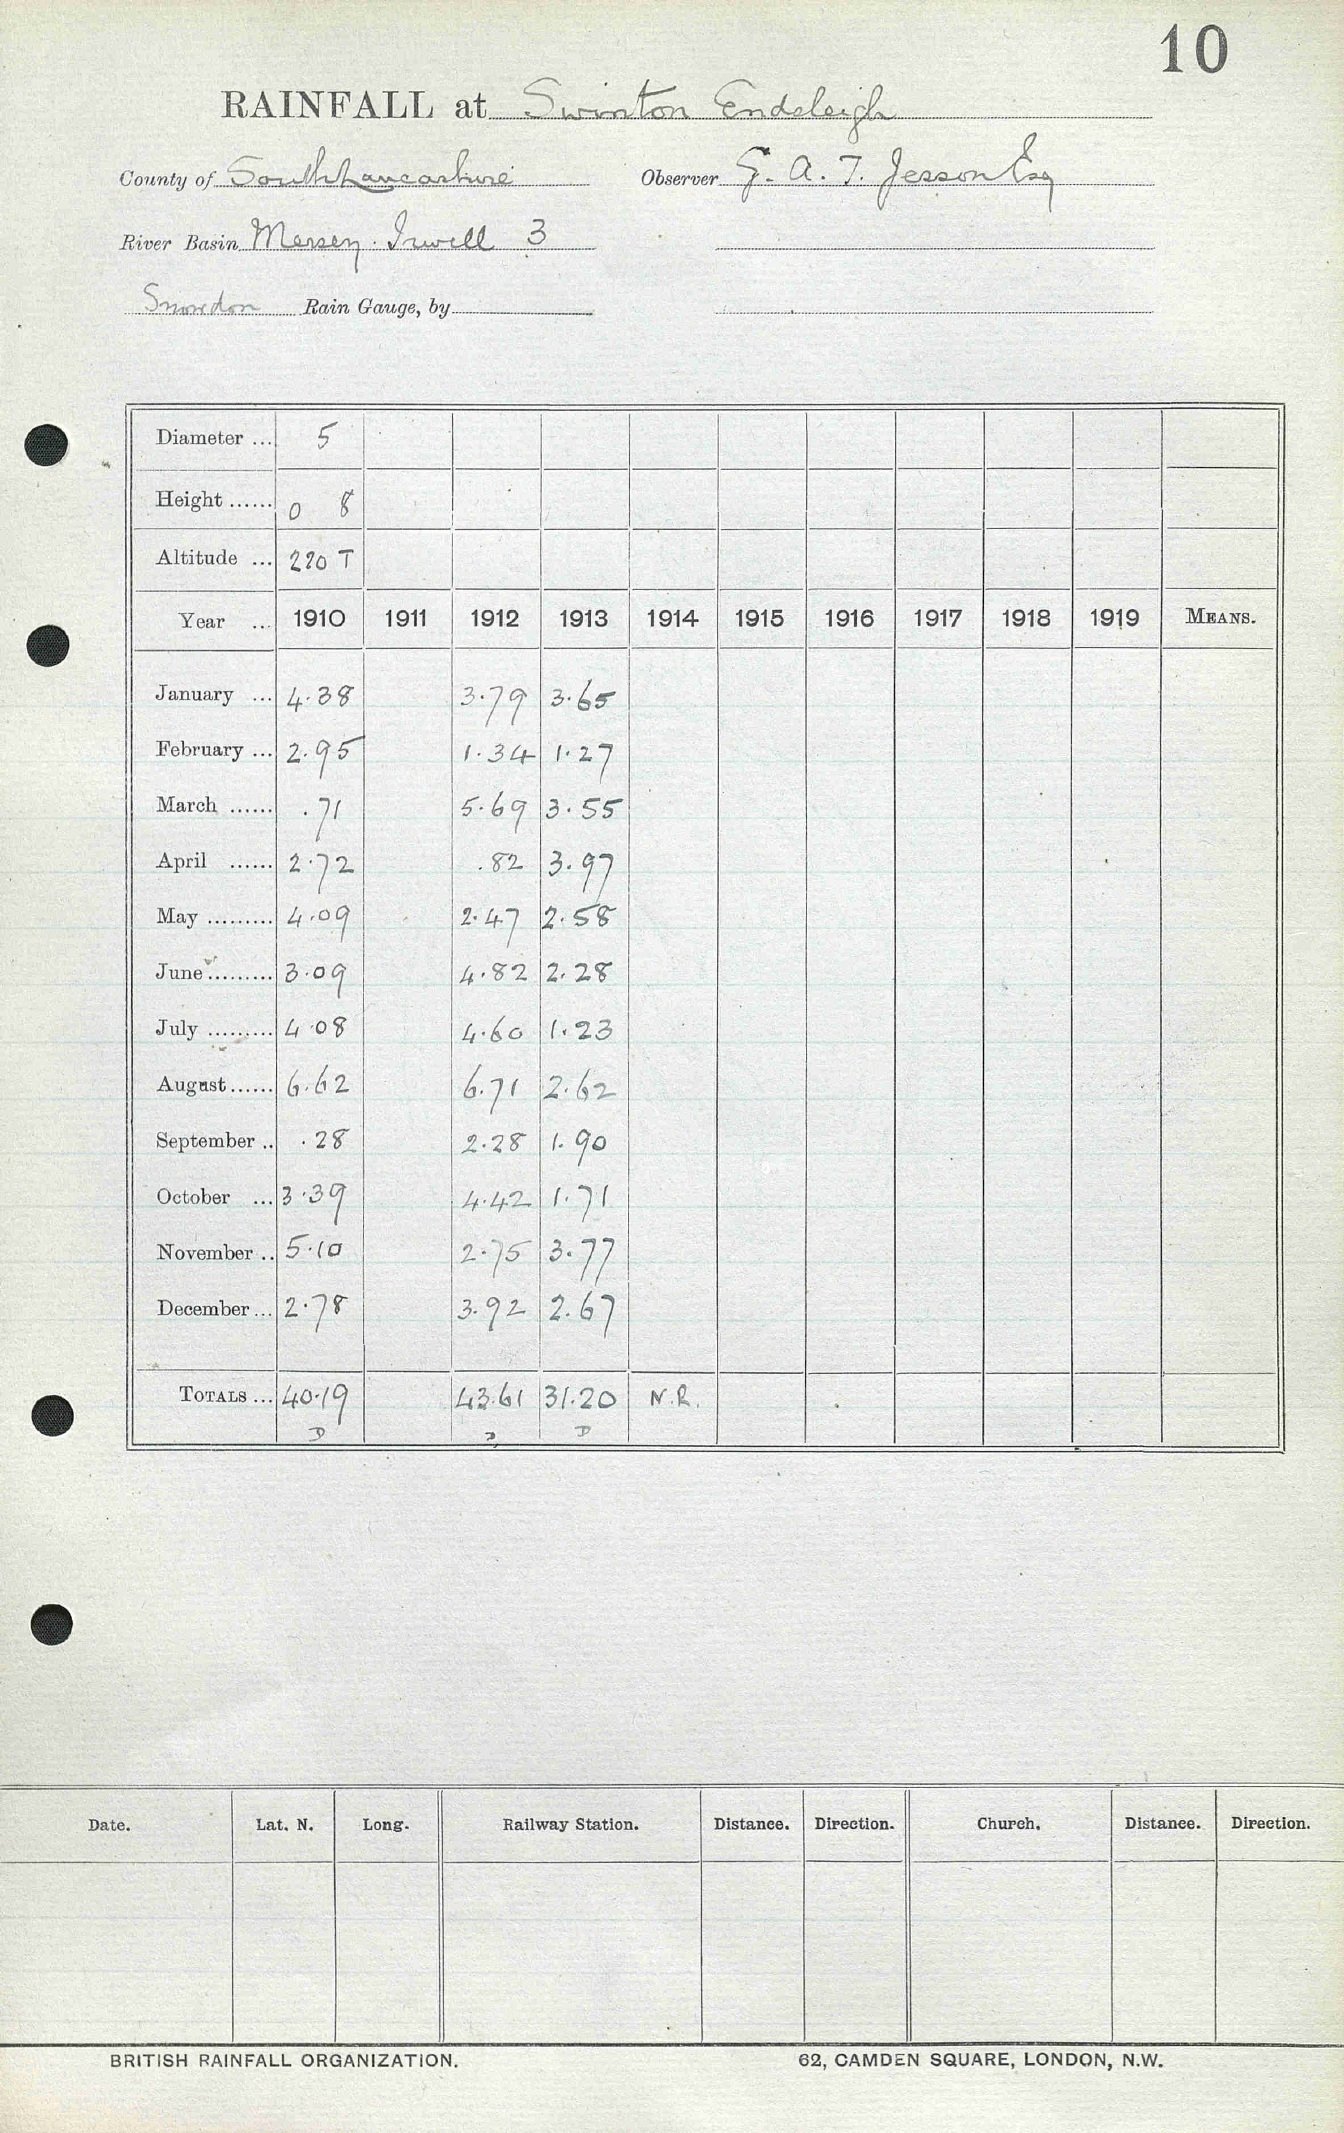 10
RAINFALL at Swinton Endsleigh
County of South Lancashire Observer G. A. T. Jesson Esq
River Basin Mersey. Irwell 3
Snowdon Rain Gauge, by
Diameter ... 5
Height ...... 0 8
Altitude ... 220 T
Year ... 1910 1911 1912 1913 1914 1915 1916 1917 1918 1919 MEANS.
January ... 4.38 3.79 3.65
February ... 2.95 1.34 1.27
March ...... .71 5.69 3.55
April ...... 2.72 .82 3.97
May ......... 4.09 2.47 2.58
June ......... 3.09 4.82 2.28
July ......... 4.08 4.60 1.23
August ...... 6.62 6.71 2.62
September .. .28 2.28 1.90
October ... 3.39 4.42 1.71
November .. 5.10 2.75 3.77
December ... 2.78 3.92 2.67
TOTALS ... 40.19 43.61 31.20 N.R.
D D D
Date. Lat. N. Long. Railway Station. Distance. Direction. Church. Distance. Direction.
BRITISH RAINFALL ORGANIZATION. 62, CAMDEN SQUARE, LONDON, N.W.